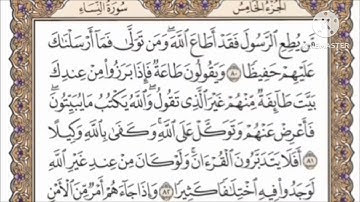 سُورَةُ النِّسَاءِ الجُزْءُ الخَامِسُ
مَّن يُطِعِ الرَّسُولَ فَقَدْ أَطَاعَ اللَّهَ وَمَن تَوَلَّىٰ فَمَا أَرْسَلْنَاكَ
عَلَيْهِمْ حَفِيظًا ٨٠ وَيَقُولُونَ طَاعَةٌ فَإِذَا بَرَزُوا مِنْ عِندِكَ
بَيَّتَ طَائِفَةٌ مِّنْهُمْ غَيْرَ الَّذِي تَقُولُ وَاللَّهُ يَكْتُبُ مَا يُبَيِّتُونَ
فَأَعْرِضْ عَنْهُمْ وَتَوَكَّلْ عَلَى اللَّهِ وَكَفَىٰ بِاللَّهِ وَكِيلًا
٨١ أَفَلَا يَتَدَبَّرُونَ الْقُرْءَانَ وَلَوْ كَانَ مِنْ عِندِ غَيْرِ اللَّهِ
لَوَجَدُوا فِيهِ اخْتِلَافًا كَثِيرًا ٨٢ وَإِذَا جَاءَهُمْ أَمْرٌ مِّنَ الْأَمْنِ